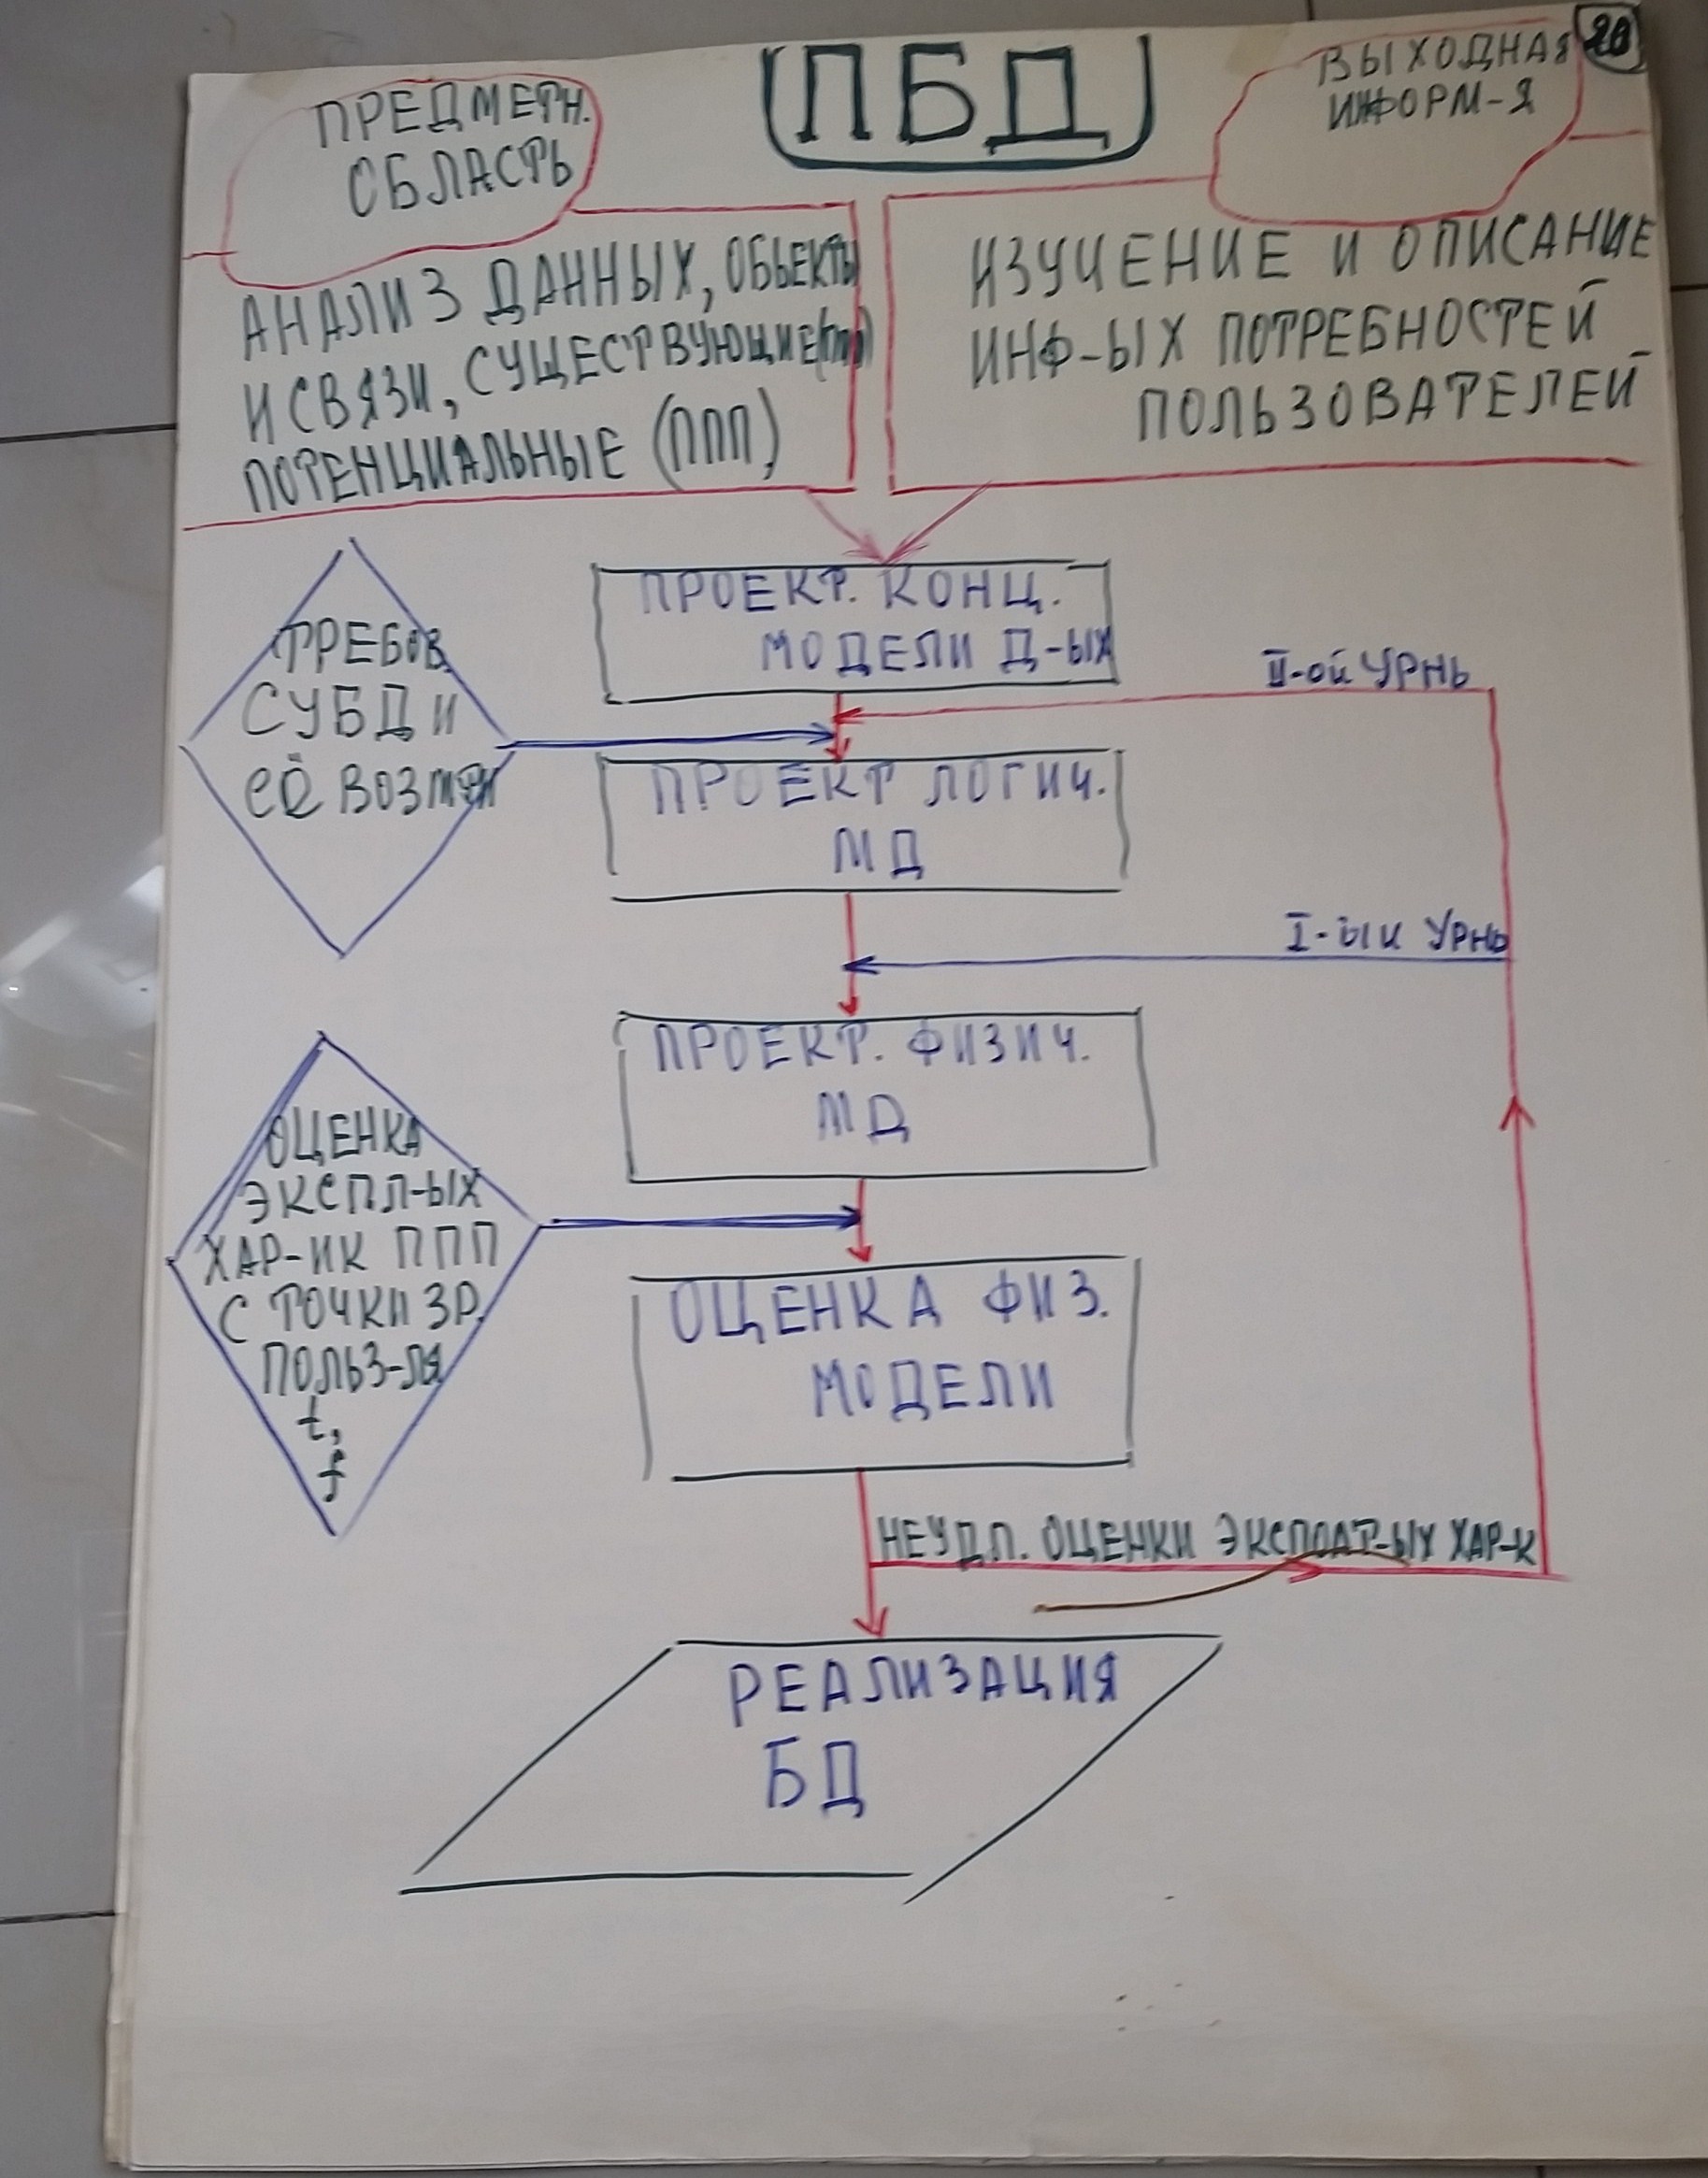 ПБД
20
ПРЕДМЕТН.
ОБЛАСТЬ
ВЫХОДНАЯ
ИНФОРМ-Я
АНАЛИЗ ДАННЫХ, ОБЬЕКТЫ
И СВЯЗИ, СУЩЕСТВУЮЩИЕ
ПОТЕНЦИАЛЬНЫЕ (ППП)
ИЗУЧЕНИЕ И ОПИСАНИЕ
ИНФ-ЫХ ПОТРЕБНОСТЕЙ
ПОЛЬЗОВАТЕЛЕЙ
ПРОЕКТ. КОНЦ.
МОДЕЛИ Д-ЫХ
ТРЕБОВ.
СУБД И
ЕЁ ВОЗМ
II-ой УРНЬ
ПРОЕКТ ЛОГИЧ.
МД
I-ый УРНЬ
ПРОЕКТ. ФИЗИЧ.
МД
ОЦЕНКА
ЭКСПЛ-ЫХ
ХАР-ИК ППП
С ТОЧКИ ЗР.
ПОЛЬЗ-ЛЯ
t,
f
ОЦЕНКА ФИЗ.
МОДЕЛИ
НЕУДЛ. ОЦЕНКИ ЭКСПЛАТ-ЫХ ХАР-К
РЕАЛИЗАЦИЯ
БД